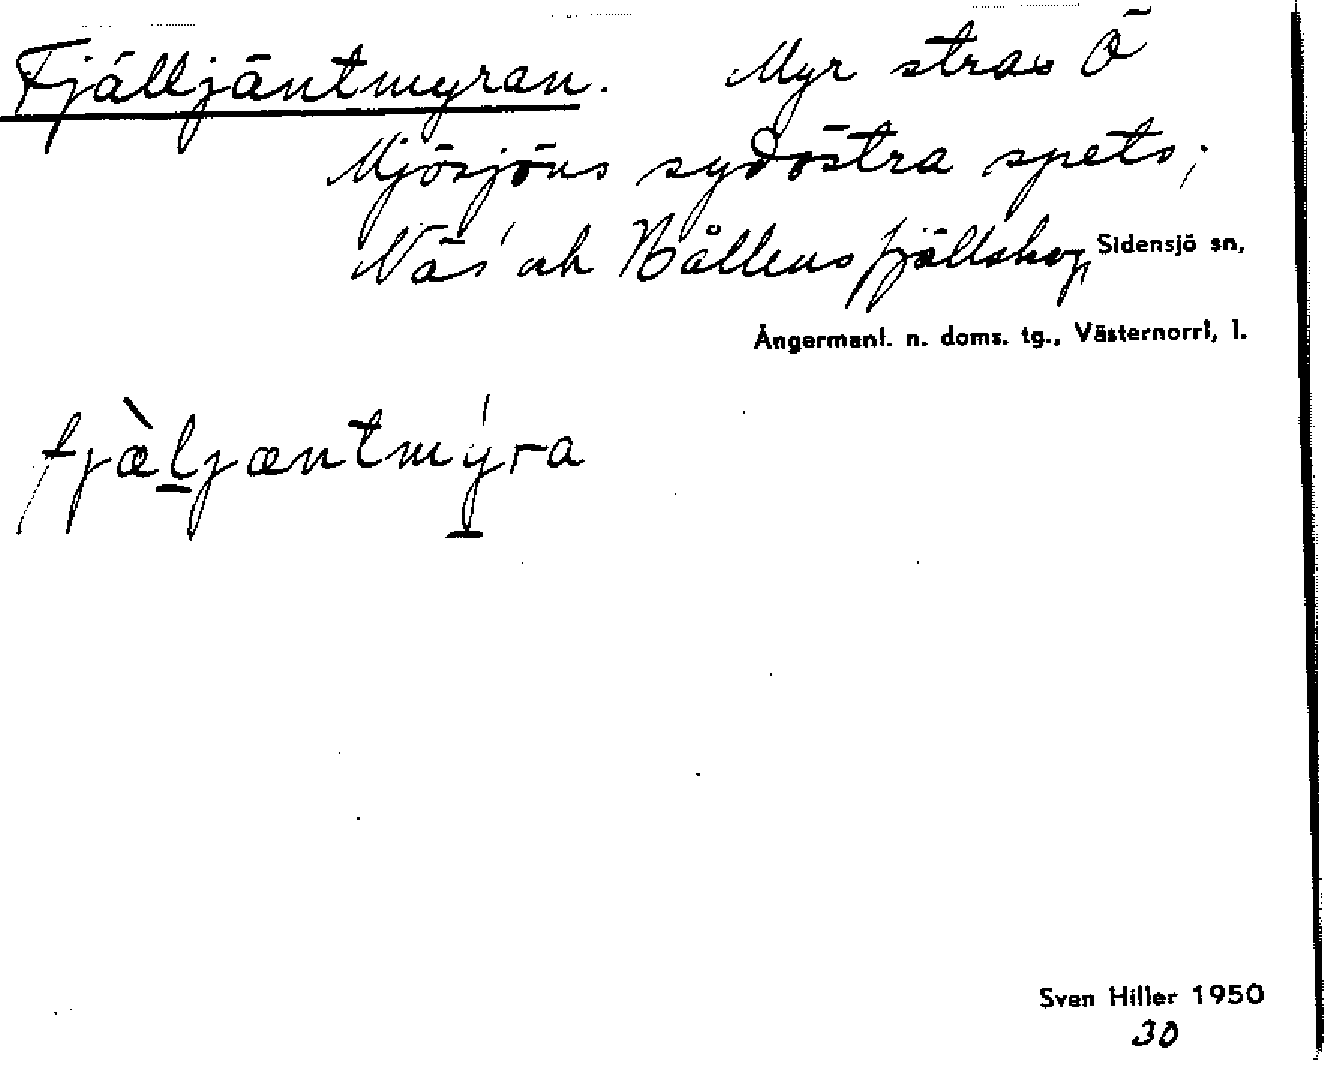 Fjälljäntmyran. Myr strax Ö
Mjösjöns sydöstra spets;
Näs' och Bållens fjällskog, Sidensjö sn,
Ångermanl. n. doms. tg., Västernorrl, l.
fjæ̀ljæntmýra
Sven Hiller 1950
30